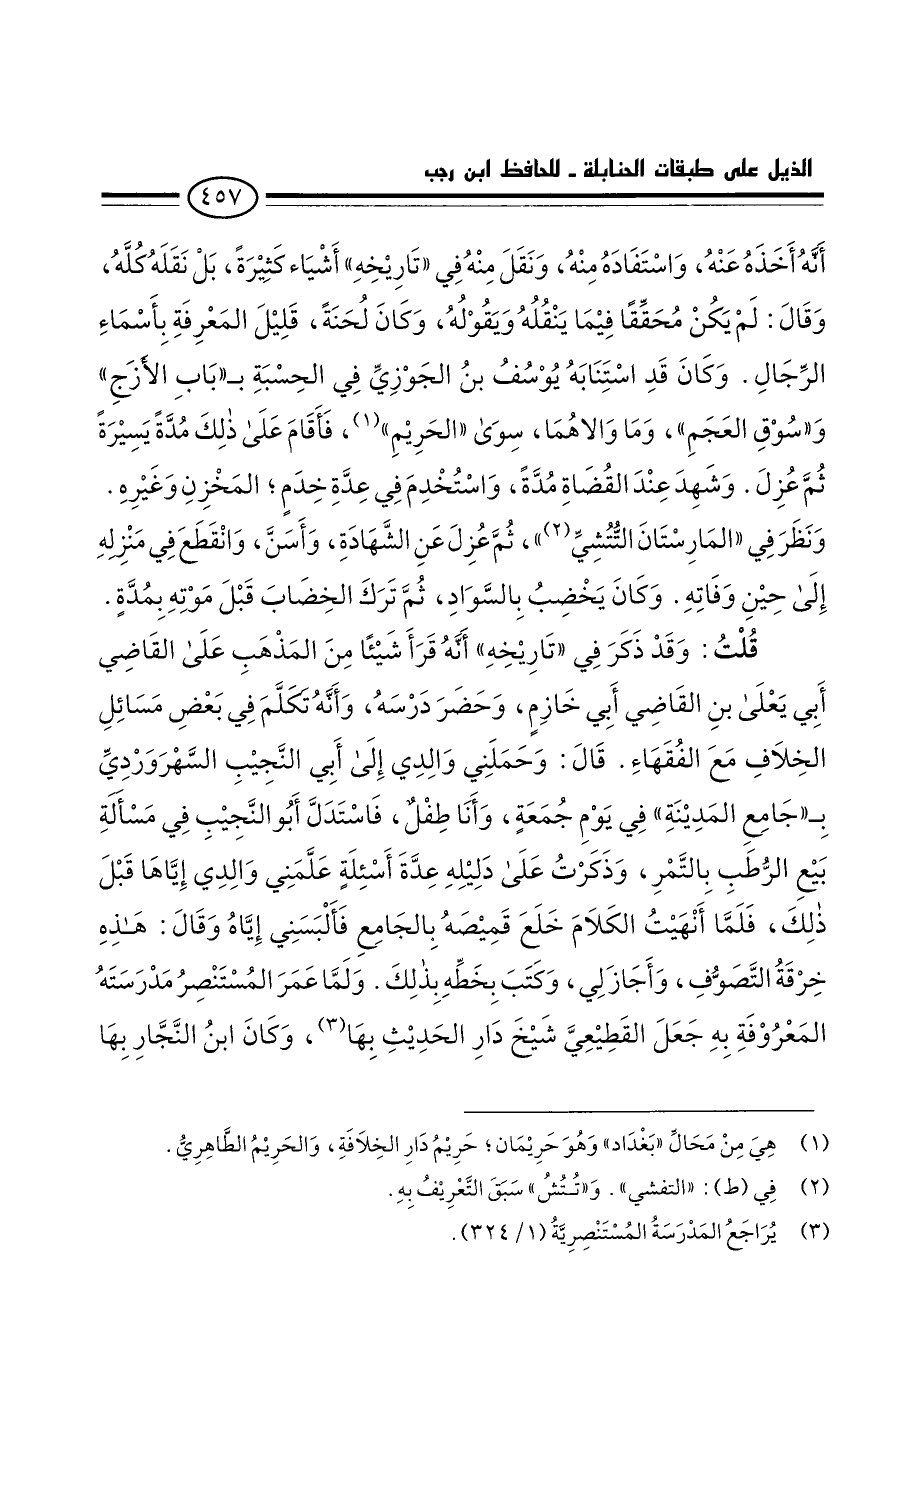 الذيل على طبقات الحنابلة ـ للحافظ ابن رجب
٤٥٧
أَنَّهُ أَخَذَهُ عَنْهُ، وَاسْتَفَادَهُ مِنْهُ، وَنَقَلَ مِنْهُ فِي «تَارِيْخِهِ» أَشْيَاء كَثِيْرَةً، بَلْ نَقَلَهُ كُلَّهُ،
وَقَالَ: لَمْ يَكُنْ مُحَقِّقًا فِيْمَا يَنْقُلُهُ وَيَقُوْلُهُ، وَكَانَ لُحَنَةً، قَلِيْلَ المَعْرِفَةِ بِأَسْمَاءِ
الرِّجَالِ. وَكَانَ قَدِ اسْتَنَابَهُ يُوْسُفُ بنُ الجَوْزِيِّ فِي الحِسْبَةِ بِـ«بَابِ الأَزَجِ»
وَ«سُوْقِ العَجَمِ»، وَمَا وَالاهُمَا، سِوَىٰ «الحَرِيْمِ»(١)، فَأَقَامَ عَلَىٰ ذٰلِكَ مُدَّةً يَسِيْرَةً
ثُمَّ عُزِلَ. وَشَهِدَ عِنْدَ القُضَاةِ مُدَّةً، وَاسْتُخْدِمَ فِي عِدَّةِ خِدَمٍ؛ المَخْزَنِ وَغَيْرِهِ.
وَنَظَرَ فِي «المَارِسْتَانَ التُّتُشِيِّ(٢)»، ثُمَّ عُزِلَ عَنِ الشَّهَادَةِ، وَأَسَنَّ، وَانْقَطَعَ فِي مَنْزِلِهِ
إِلَىٰ حِيْنِ وَفَاتِهِ. وَكَانَ يَخْضِبُ بِالسَّوَادِ، ثُمَّ تَرَكَ الخِضَابَ قَبْلَ مَوْتِهِ بِمُدَّةٍ.
قُلْتُ: وَقَدْ ذَكَرَ فِي «تَارِيْخِهِ» أَنَّهُ قَرَأَ شَيْئًا مِنَ المَذْهَبِ عَلَىٰ القَاضِي
أَبِي يَعْلَىٰ بنِ القَاضِي أَبِي خَازِمٍ، وَحَضَرَ دَرْسَهُ، وَأَنَّهُ تَكَلَّمَ فِي بَعْضِ مَسَائِلِ
الخِلَافِ مَعَ الفُقَهَاءِ. قَالَ: وَحَمَلَنِي وَالِدِي إِلَىٰ أَبِي النَّجِيْبِ السَّهْرَوَرْدِيِّ
بِـ«جَامِعِ المَدِيْنَةِ» فِي يَوْمِ جُمَعَةٍ، وَأَنَا طِفْلٌ، فَاسْتَدَلَّ أَبُو النَّجِيْبِ فِي مَسْأَلَةِ
بَيْعِ الرُّطَبِ بِالتَّمْرِ، وَذَكَرْتُ عَلَىٰ دَلِيْلِهِ عِدَّةَ أَسْئِلَةٍ عَلَّمَنِي وَالِدِي إِيَّاهَا قَبْلَ
ذٰلِكَ، فَلَمَّا أَنْهَيْتُ الكَلَامَ خَلَعَ قَمِيْصَهُ بِالجَامِعِ فَأَلْبَسَنِي إِيَّاهُ وَقَالَ: هَـٰذِهِ
خِرْقَةُ التَّصَوُّفِ، وَأَجَازَ لِي، وَكَتَبَ بِخَطِّهِ بِذٰلِكَ. وَلَمَّا عَمَرَ المُسْتَنْصِرُ مَدْرَسَتَهُ
المَعْرُوْفَةِ بِهِ جَعَلَ القَطِيْعِيَّ شَيْخَ دَارِ الحَدِيْثِ بِهَا(٣)، وَكَانَ ابنُ النَّجَّارِ بِهَا
(١) هِيَ مِنْ مَحَالِّ «بَغْدَاد» وَهُوَ حَرِيْمَان؛ حَرِيْمُ دَارِ الخِلَافَةِ، وَالحَرِيْمُ الطَّاهِرِيُّ.
(٢) فِي (ط): «التفشي». وَ«تُـتُشُ» سَبَقَ التَّعْرِيْفُ بِهِ.
(٣) يُرَاجَعُ المَدْرَسَةُ المُسْتَنْصِرِيَّةُ (١/ ٣٢٤).